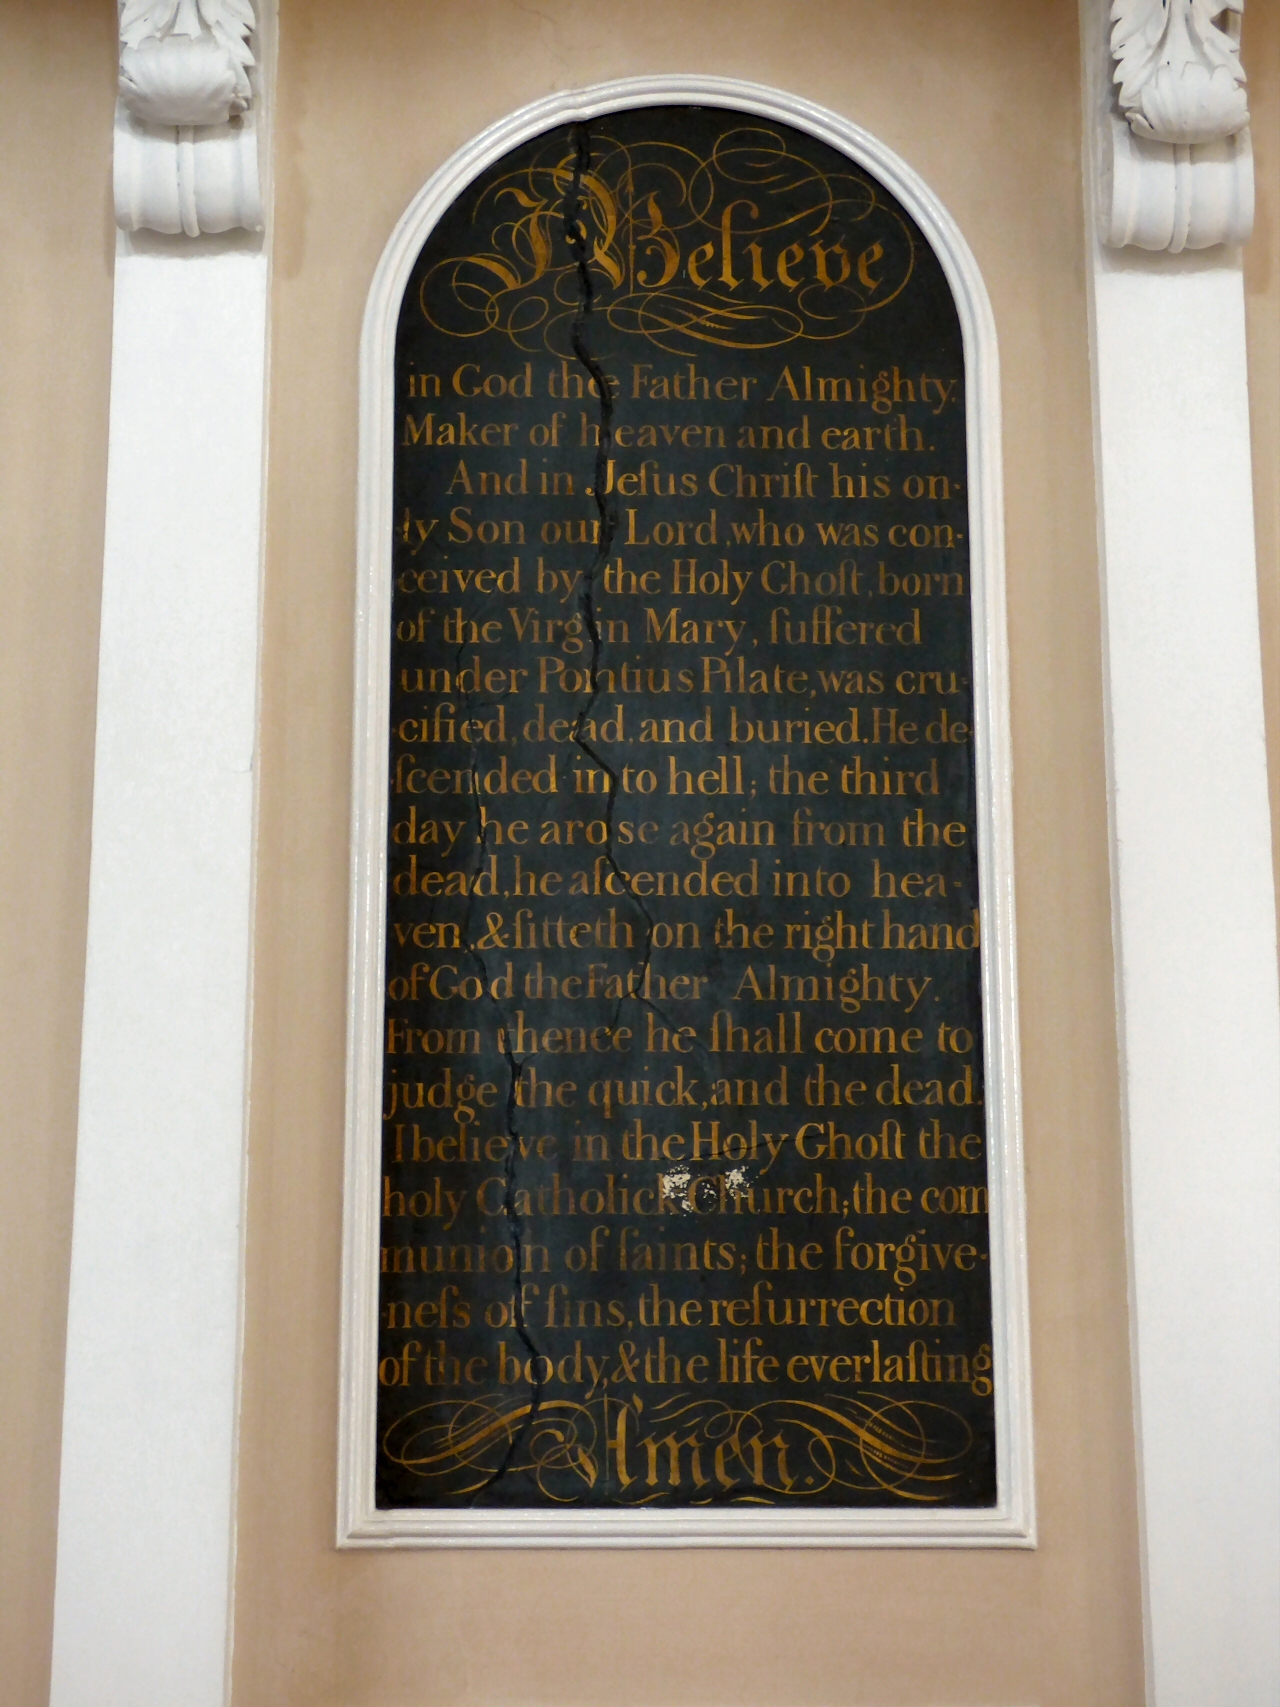 I Believe
in God the Father Almighty.
Maker of heaven and earth.
And in Jeſus Chriſt his on-
ly Son our Lord, who was con-
ceived by the Holy Ghoſt, born
of the Virgin Mary, ſuffered
under Pontius Pilate, was cru-
cified, dead, and buried. He de-
ſcended in to hell; the third
day he arose again from the
dead, he aſcended into hea-
ven, & ſitteth on the right hand
of God the Father Almighty.
From thence he ſhall come to
judge the quick, and the dead.
I believe in the Holy Ghoſt the
holy Catholick Church; the com
munion of ſaints; the forgive-
neſs of ſins, the reſurrection
of the body, & the life everlaſting
Amen.